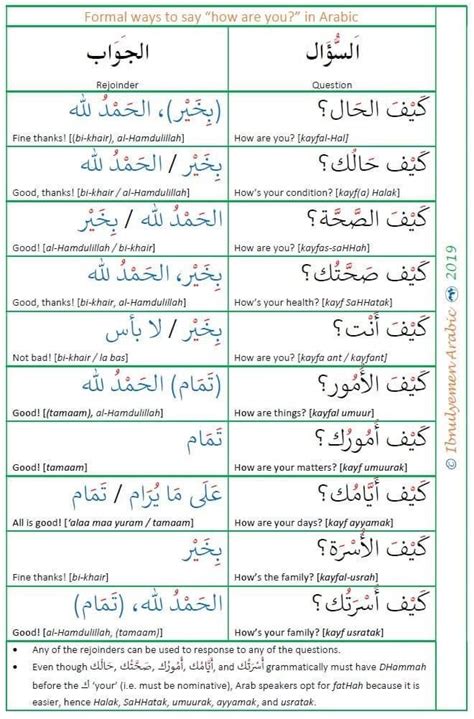 Formal ways to say “how are you?” in Arabic
الجَوَاب
Rejoinder
اَلسُّؤَال
Question
(بِخَيْر)، الحَمْدُ لله
Fine thanks! [(bi-khair), al-Hamdulillah]
كَيْفَ الحَال؟
How are you? [kayfal-Hal]
بِخَيْر / الحَمْدُ لله
Good, thanks! [bi-khair / al-Hamdulillah]
كَيْفَ حَالُك؟
How’s your condition? [kayf(a) Halak]
الحَمْدُ لله / بِخَيْر
Good! [al-Hamdulillah / bi-khair]
كَيْفَ الصِّحَّة؟
How are you? [kayfas-saHHah]
بِخَيْر، الحَمْدُ لله
Good, thanks! [bi-khair, al-Hamdulillah]
كَيْفَ صَحَّتُك؟
How’s your health? [kayf SaHHatak]
بِخَيْر / لا بأس
Not bad! [bi-khair / la bas]
كَيْفَ أَنْت؟
How are you? [kayfa ant / kayfant]
(تَمَام) الحَمْدُ لله
Good! [(tamaam), al-Hamdulillah]
كَيْفَ الأُمُور؟
How are things? [kayfal umuur]
تَمَام
Good! [tamaam]
كَيْفَ أُمُورُك؟
How are your matters? [kayf umuurak]
عَلَى مَا يُرَام / تَمَام
All is good! [‘alaa maa yuram / tamaam]
كَيْفَ أَيَّامُك؟
How are your days? [kayf ayyamak]
بِخَيْر
Fine thanks! [bi-khair]
كَيْفَ الأُسْرَة؟
How’s the family? [kayfal-usrah]
الحَمْدُ لله، (تَمَام)
Good! [al-Hamdulillah, (tamaam)]
كَيْفَ أُسْرَتُك؟
How’s your family? [kayf usratak]
• Any of the rejoinders can be used to response to any of the questions.
• Even though أُسْرَتُك, and أَيَّامُك, أُمُورُك, صَحَّتُك, حَالُك grammatically must have DHammah
before the ك ‘your’ (i.e. must be nominative), Arab speakers opt for fatHah because it is
easier, hence Halak, SaHHatak, umuurak, ayyamak, and usratak.
© Ibnulyemen Arabic 2019